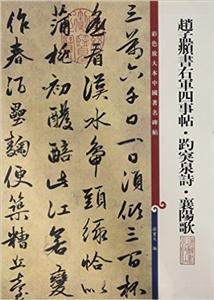 彩色放大本中國著名碑帖
趙孟頫書右軍四事帖·趵突泉詩·襄陽歌
孫寶文 編
三萬六千日一日須傾三百杯
遙看漢水鴨頭綠恰似
蒲桃初醱醅此江若變
作春壘麴便築糟丘臺